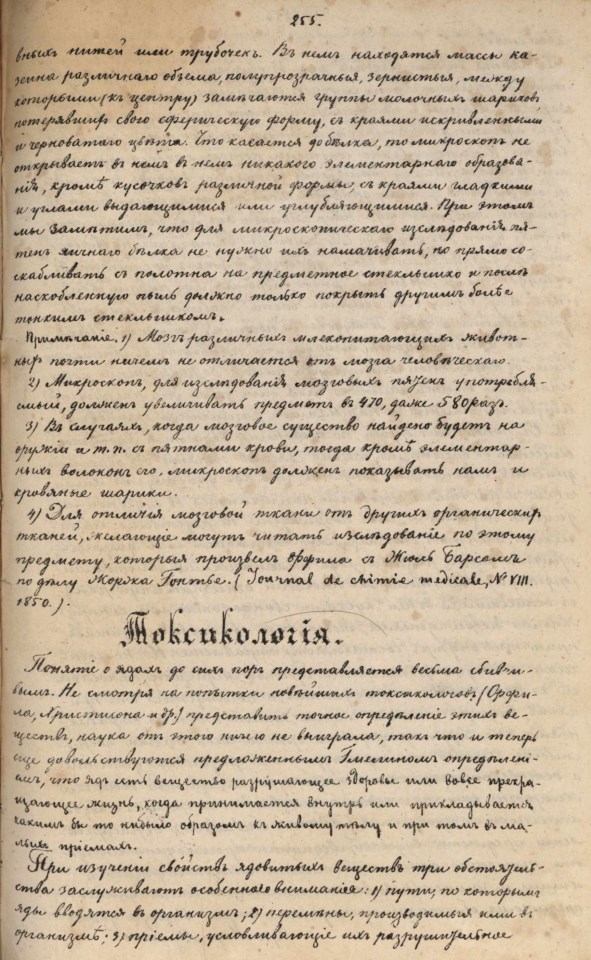 255.
вныхъ нитей или трубочекъ. Въ немъ находятся массы ка-
зеина различнаго объема, полупрозрачныя, зернистыя, между
которыми (къ центру) замѣчаются группы молочныхъ шариковъ
потерявшихъ свою сферическую форму, съ краями искривленными
и черноватаго цвѣта. Что касается до бѣлка, то микроскопъ не
открываетъ въ немъ въ немъ никакого элементарнаго образова-
нія, кромѣ кусочковъ различной формы, съ краями гладкими
и углами выдающимися или углубляющимися. При этомъ
мы замѣтимъ, что для микроскопическаго изслѣдованія пя-
тенъ яичнаго бѣлка не нужно ихъ намачивать, но прямо со-
скабливать съ полотна на предметное стеклышко и послѣ
наскобленную пыль должно только покрыть другимъ болѣе
тонкимъ стеклышкомъ.
Примѣчаніе. 1) Мозгъ различныхъ млекопитающихъ живот-
ныхъ почти ничемъ не отличается отъ мозга человѣческаго.
2) Микроскопъ, для изслѣдованія мозговыхъ пятенъ употребля-
емый, долженъ увеличивать предметъ въ 470, даже 580 разъ.
3) Въ случаяхъ, когда мозговое существо найдено будетъ на
оружіи и т.п. съ пятнами крови, тогда кромѣ элементар-
ныхъ волоконъ его, микроскопъ долженъ показывать намъ и
кровяные шарики.
4) Для отличія мозговой ткани отъ другихъ органическихъ
тканей, желающіе могутъ читать изслѣдованіе по этому
предмету, которыя произвелъ Орфила съ Жюль Барсомъ
по дѣлу Жоржа Гонтье. (Journal de chimie medicale, № VIII.
1850.).
Токсикологія.
Понятіе о ядахъ до сихъ поръ представляется весьма сбивчи-
вымъ. Не смотря на попытки новѣйшихъ токсикологовъ (Орфи-
ла, Христисона и др.) представить точное опредѣленіе этихъ ве-
ществъ, наука отъ этого ничего не выиграла, такъ что и теперь
еще довольствуются предложеннымъ Гмелиномъ опредѣлені-
емъ, что ядъ есть вещество разрушающее здоровье или вовсе прекра-
щающее жизнь, когда принимается внутрь или прикладывается
какимъ бы то нибыло образомъ къ живому тѣлу и при томъ въ ма-
лыхъ пріемахъ.
При изученіи свойствъ ядовитыхъ веществъ три обстоятель-
ства заслуживаютъ особеннаго вниманія: 1) пути, по которымъ
яды вводятся въ организмъ; 2) перемѣны, производимыя ими въ
организмѣ; 3) пріемы, условливающіе ихъ разрушительное